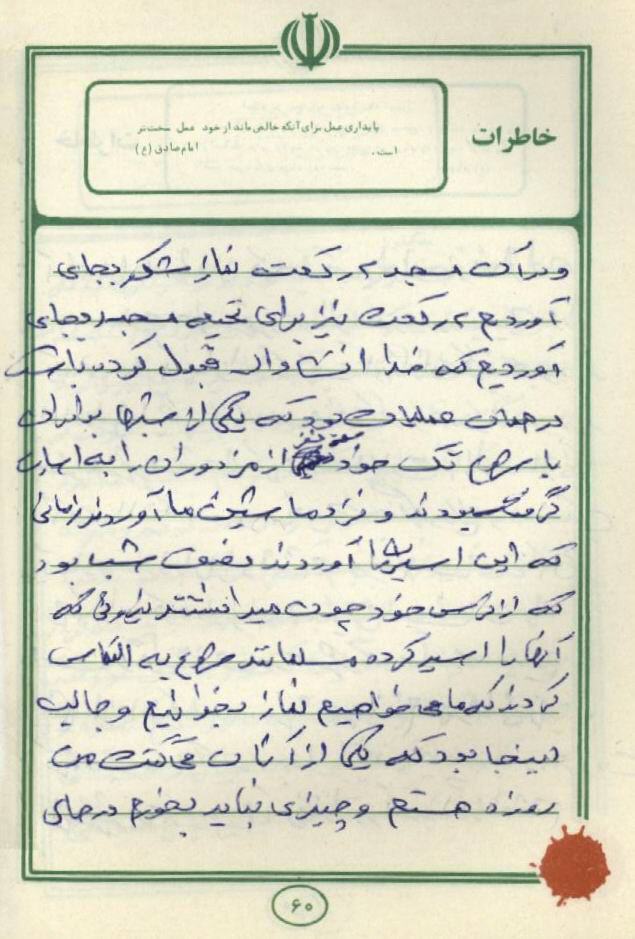 خاطرات
پایداری عمل برای آنکه خالص ماند از خود عمل سخت‌تر
است. امام صادق (ع)
و در آن مسجد ۲ رکعت نماز شکر بجای
آوردیم ۲ رکعت نیز برای تحیه مسجد بجای
آوردیم که خدا انشاءالله قبول کرده باشد
در همان عملیات بود که یکی از شبها برادران
با تک خود از مزدوران را به اسارت
گرفته بودند و نزد ماشین ما آوردند زمانی
که این اسیرها را آوردند نصف شب بود
که از ترس خود چون میدانستند نیروئی که
آنها را اسیر کرده مسلمانند شروع به التماس
کردند که ما می خواهیم نماز بخوانیم و جالب
اینجا بود که یکی از آنان می گفت من
روزه هستم و چیزی نباید بخورم در حالی
۶۰